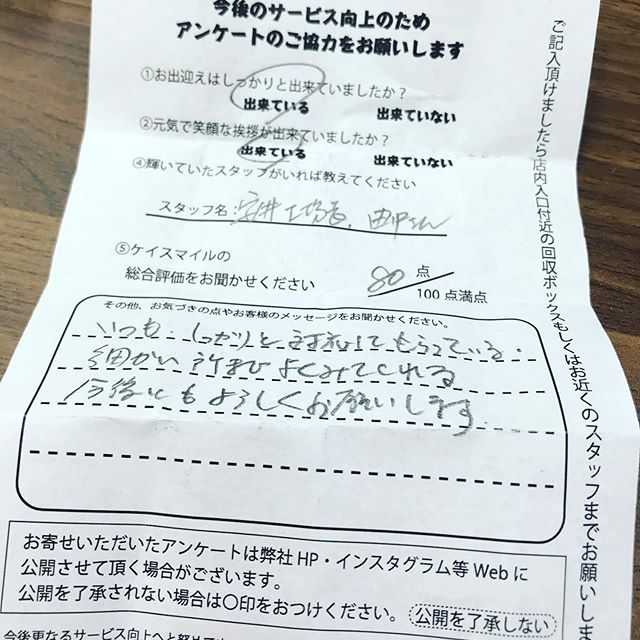 今後のサービス向上のため
アンケートのご協力をお願いします
①お出迎えはしっかりと出来ていましたか？
出来ている 出来ていない
②元気で笑顔な挨拶が出来ていましたか？
出来ている 出来ていない
④輝いていたスタッフがいれば教えてください
スタッフ名：安井工場長、田中さん
⑤ケイスマイルの
総合評価をお聞かせください
80 点
100 点満点
その他、お気づきの点やお客様のメッセージをお聞かせください。
いつも しっかりと 対応して もらっている.
細かい 所まで よくみてくれる
今後とも よろしくお願いします
お寄せいただいたアンケートは弊社 HP・インスタグラム等 Web に
公開させて頂く場合がございます。
公開を了承されない場合は〇印をおつけください。 公開を了承しない
今後更なるサービス向上へと努めて
ご記入頂けましたら店内入口付近の回収ボックスもしくはお近くのスタッフまでお願いしま